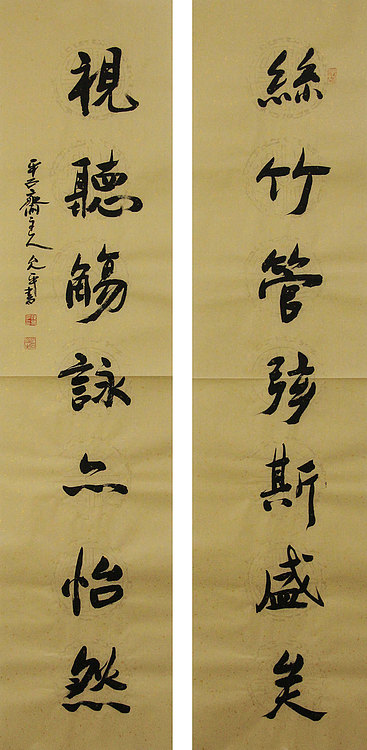 絲竹管弦斯盛矣
視聽觴詠亦怡然
齋主人允平書